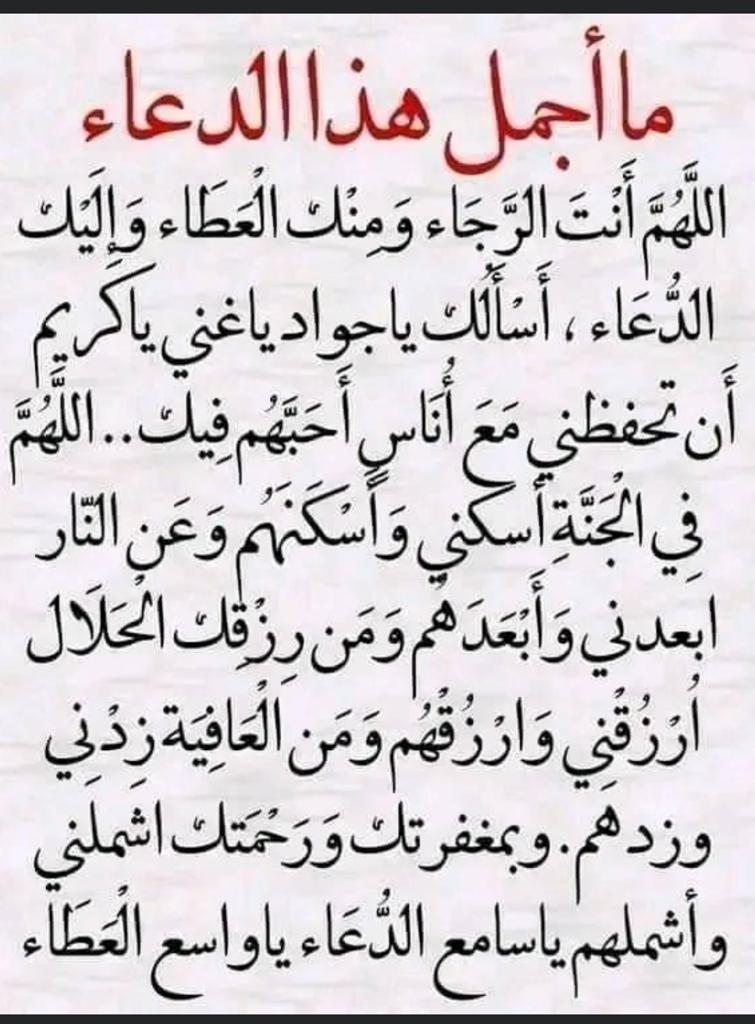 ما أجمل هذا الدعاء
اللَّهُمَّ أَنْتَ الرَّجَاء وَمِنْك الْعَطَاء وَإِلَيْك
الدُّعَاء ، أَسْأَلُك ياجواد ياغني ياكَريم
أَن تحفظني مَعَ أُنَاسٍ أَحَبَّهُم فِيك.. اللَّهُمَّ
فِي الْجَنَّةِ أَسكني وَأَسْكَنَهُم وَعَن النَّار
ابعدني وَأَبْعَدَهُم وَمَن رِزْقِك الْحَلَال
اُرْزُقْنِي وَارْزُقْهُم وَمَن الْعَافِيَة زِدْنِي
وزدهم. وبمغفرتك وَرَحْمَتك اشملني
وأشملهم ياسامع الدُّعَاء ياواسع الْعَطَاء